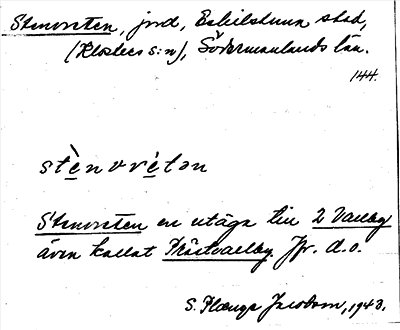 Stenvreten, jord, Eskilstuna stad,
(Klosters s:n), Södermanlands län.
144.
stènvrétən
Stenvreten en utäga till 2 Vallby
även kallat Prästvallby. Jfr. d.o.
S. Plænge Jacobson, 1943.